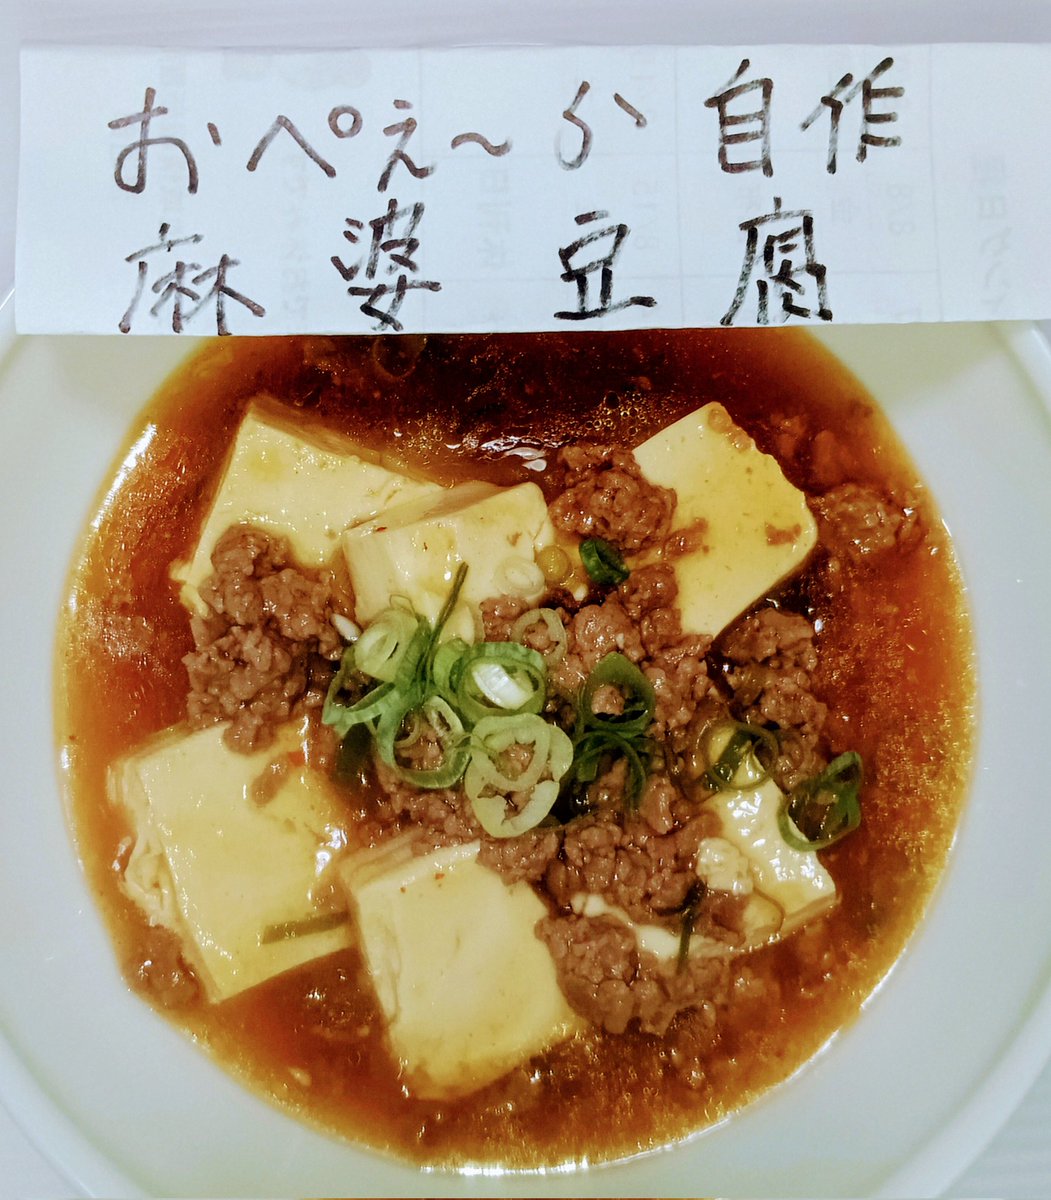 おぺぇ〜 自作
麻婆豆腐